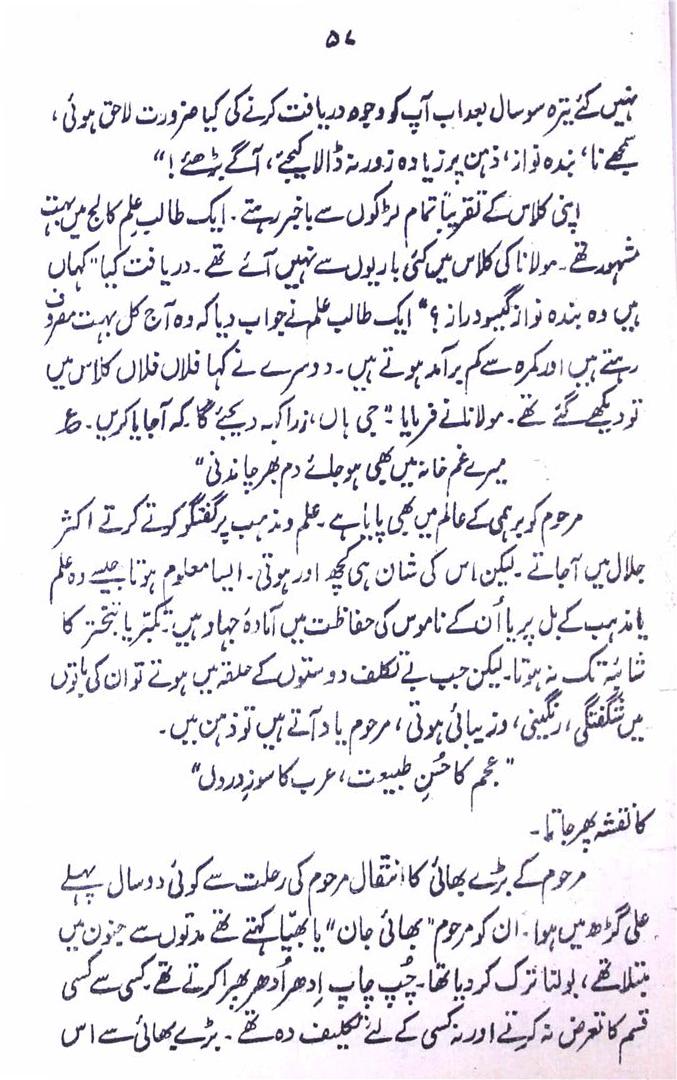 ۵۷
نہیں کئے تیرہ سو سال بعد اب آپ کو وجوہ دریافت کرنے کی کیا ضرورت لاحق ہوئی،
سمجھے نا، بندہ نواز، ذہن پر زیادہ زور نہ ڈالا کیجئے، آگے بڑھئے!"
اپنی کلاس کے تقریباً تمام لڑکوں سے باخبر رہتے۔ ایک طالب علم کالج میں بہت
مشہور تھے۔ مولانا کی کلاس میں کئی باریوں سے نہیں آئے تھے۔ دریافت کیا "کہاں
ہیں وہ بندہ نواز گیسو دراز؟" ایک طالب علم نے جواب دیا کہ وہ آج کل بہت مصروف
رہتے ہیں اور کمرہ سے کم برآمد ہوتے ہیں۔ دوسرے نے کہا فلاں فلاں کلاس میں
تو دیکھے گئے تھے۔ مولانا نے فرمایا "جی ہاں، ذرا کہہ دیجئے گا کہ آجایا کریں۔ ؏
میرے غم خانہ میں بھی ہو جائے دم بھر چاندنی"
مرحوم کو برہمی کے عالم میں بھی پایا ہے۔ علم و مذہب پر گفتگو کرتے کرتے اکثر
جلال میں آجاتے۔ لیکن اس کی شان ہی کچھ اور ہوتی۔ ایسا معلوم ہوتا جیسے وہ علم
یا مذہب کے بل پر یا اُن کے ناموس کی حفاظت میں آمادۂ جہاد ہیں۔ تکبّر یا تبختر کا
شائبہ تک نہ ہوتا۔ لیکن جب بے تکلف دوستوں کے حلقہ میں ہوتے تو ان کی باتوں
میں شگفتگی، رنگینی، و زیبائی ہوتی، مرحوم یاد آتے ہیں تو ذہن میں۔
"عجم کا حُسنِ طبیعت، عرب کا سوزِ دردل"
کا نقشہ پھر جاتا۔
مرحوم کے بڑے بھائی کا انتقال مرحوم کی رحلت سے کوئی دو سال پہلے
علی گڑھ میں ہوا۔ ان کو مرحوم "بھائی جان" یا بھیّا کہتے تھے مدتوں سے جنون میں
مبتلا تھے، بولنا ترک کر دیا تھا۔ چُپ چاپ اِدھر اُدھر پھرا کرتے تھے۔ کسی سے کسی
قسم کا تعرض نہ کرتے اور نہ کسی کے لئے تکلیف دہ تھے۔ بڑے بھائی سے اس